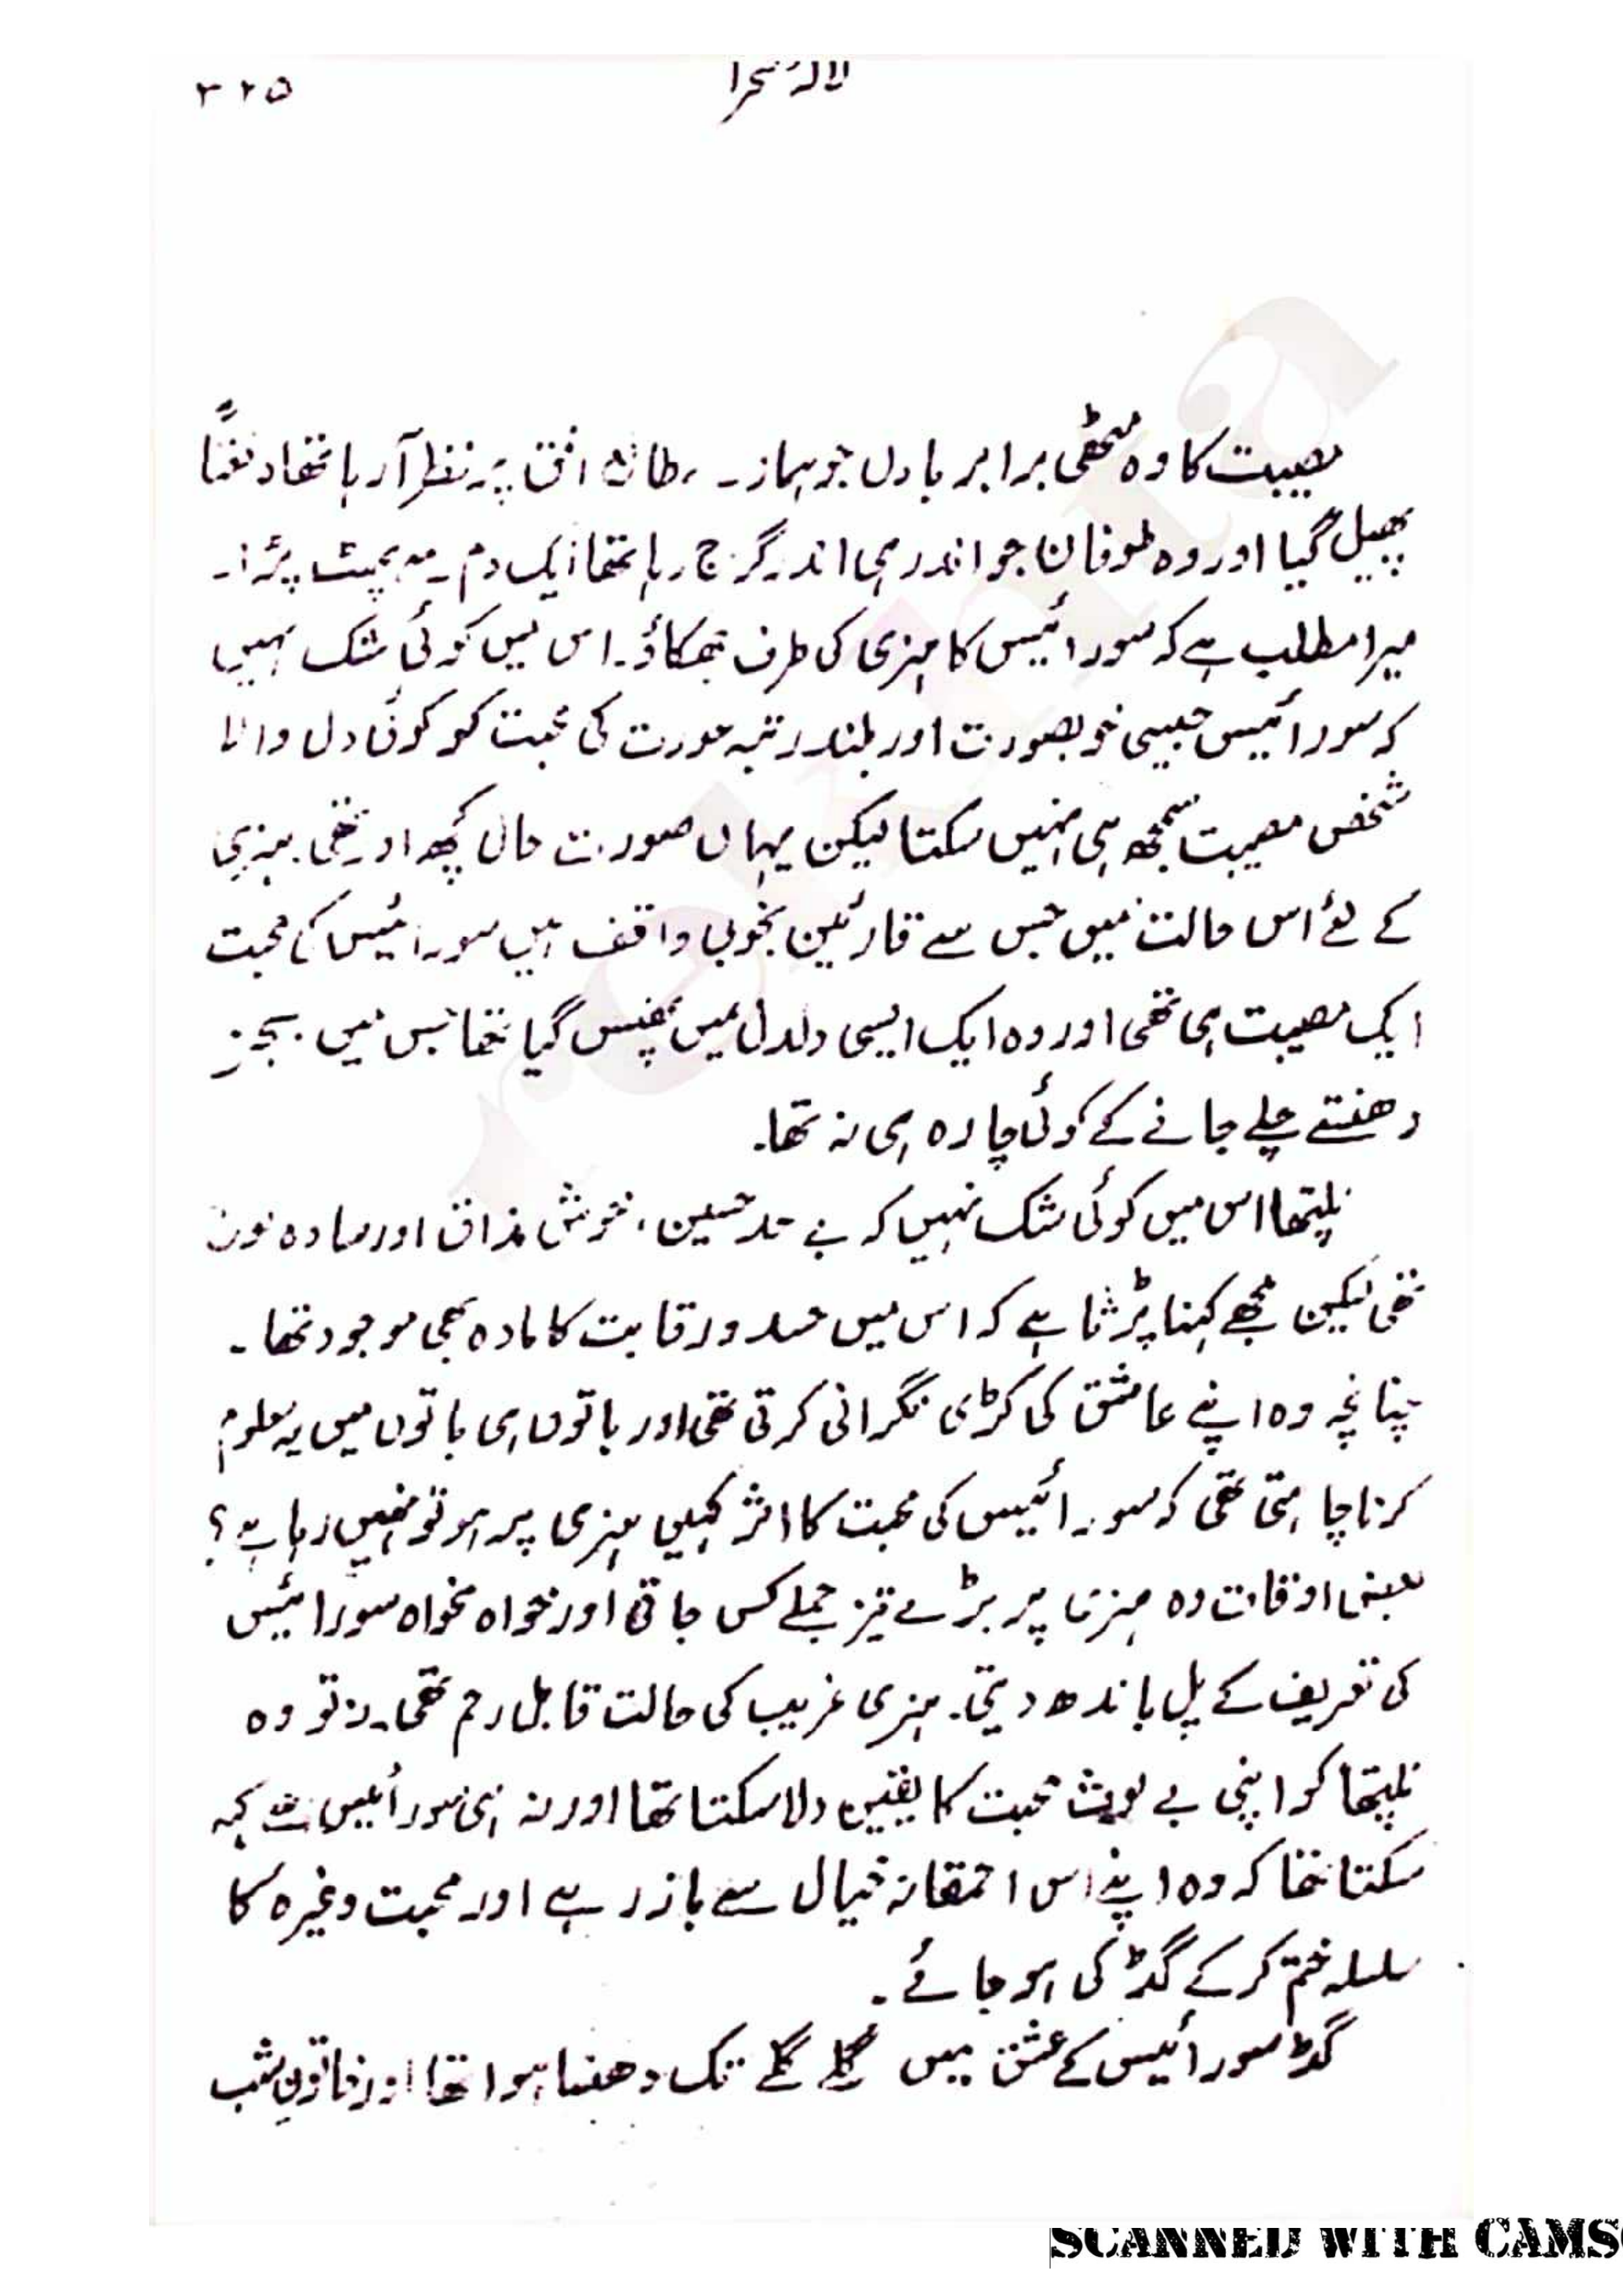 لالۂ صحرا ۲۲۵
مصیبت کا وہ مٹھی برابر بادل جو ہمارے مطالعہ افق پر نظر آ رہا تھا دفعتاً
پھیل گیا اور وہ طوفان جو اندر ہی اندر گرج رہا تھا ایک دم سے پھٹ پڑا۔
میرا مطلب ہے کہ سورائیس کا ہنری کی طرف جھکاؤ۔ اس میں کوئی شک نہیں
کہ سورائیس جیسی خوبصورت اور بلند رتبہ عورت کی محبت کو کوئی دل والا
شخص مصیبت سمجھ ہی نہیں سکتا لیکن یہاں صورت حال کچھ اور تھی۔ ہنری
کے لئے اس حالت میں جس سے قارئین بخوبی واقف ہیں سورائیس کی محبت
ایک مصیبت ہی تھی اور وہ ایک ایسی دلدل میں پھنس گیا تھا جس میں بجز
دھنستے چلے جانے کے کوئی چارہ ہی نہ تھا۔
نلپتھا اس میں کوئی شک نہیں کہ بے حد حسین، خوش مذاق اور سادہ لوح
تھی لیکن مجھے کہنا پڑتا ہے کہ اس میں حسد و رقابت کا مادہ بھی موجود تھا۔
چنانچہ وہ اپنے عاشق کی کڑی نگرانی کرتی تھی اور باتوں ہی باتوں میں یہ معلوم
کرنا چاہتی تھی کہ سورائیس کی محبت کا اثر کہیں ہنری پر ہو تو نہیں رہا ہے؟
بعض اوقات وہ ہنری پر بڑے تیز جملے کس جاتی اور خواہ مخواہ سورائیس
کی تعریف کے پل باندھ دیتی۔ ہنری غریب کی حالت قابل رحم تھی۔ نہ تو وہ
نلپتھا کو اپنی بے لوث محبت کا یقین دلا سکتا تھا اور نہ ہی سورائیس سے کہہ
سکتا تھا کہ وہ اپنے اس احمقانہ خیال سے باز رہے اور محبت وغیرہ کا
سلسلہ ختم کر کے گڈ کی ہو جائے۔
گڈ سورائیس کے عشق میں گلے گلے تک دھنسا ہوا تھا اور خاتونِ شب
SCANNED WITH CAMS